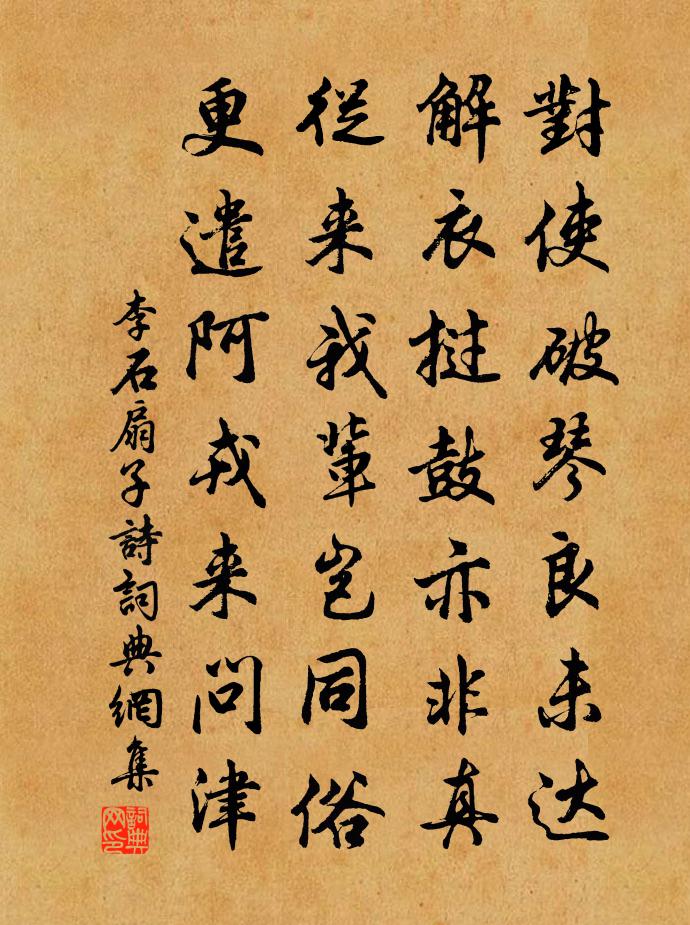 對使破琴良未达
解衣挝鼓亦非真
從来我輩岂同俗
更遣阿戎来问津
李石扇子詩詞典網集
詞典网印